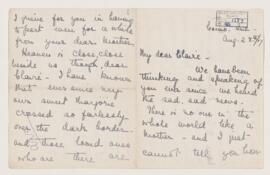 Aug. 28th/17
My dear Claire. -
We have been
thinking and speaking of
you ever since we heard
the sad, sad - news. -
There is no one in the
whole world like a
mother - and I just
cannot tell you how
I grieve for you in having
to part even for a while
from your dear mother.
Heaven is close, close
beside us though, dear
Claire - I have known
that ever since my
own sweet Marjorie
crossed so fearlessly
over the dark border -
and those loved ones
who are there are